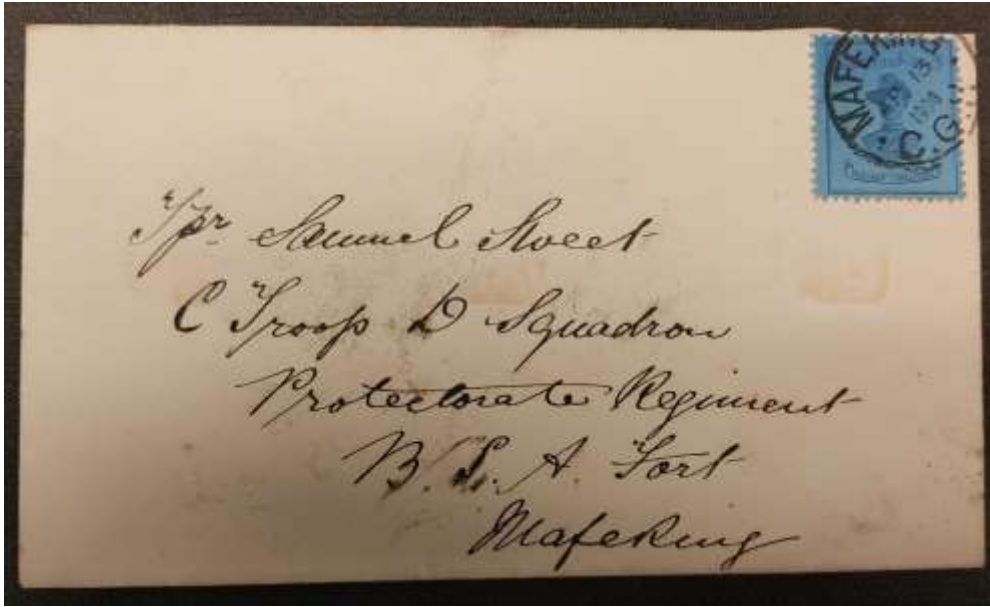 MAFEKING
C.G.H.
13
Tpr Samuel Sweet
C Troop D Squadron
Protectorate Regiment
B. S. A. Fort
Mafeking